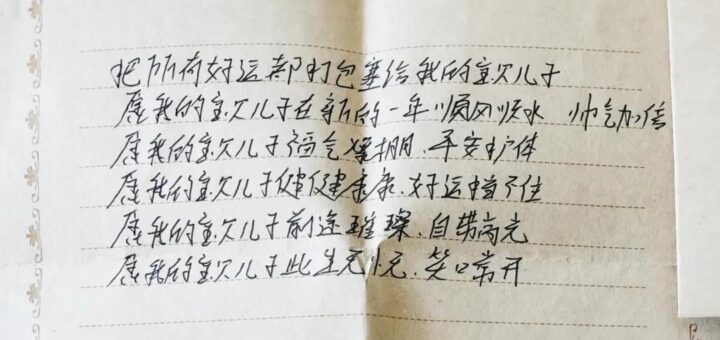 把所有好运都打包塞给我的宝贝儿子
愿我的宝贝儿子在新的一年顺风顺水 帅气加倍
愿我的宝贝儿子福气爆棚.平安护体
愿我的宝贝儿子健健康康.好运挡不住
愿我的宝贝儿子前途璀璨.自带高光
愿我的宝贝儿子此生无忧.笑口常开